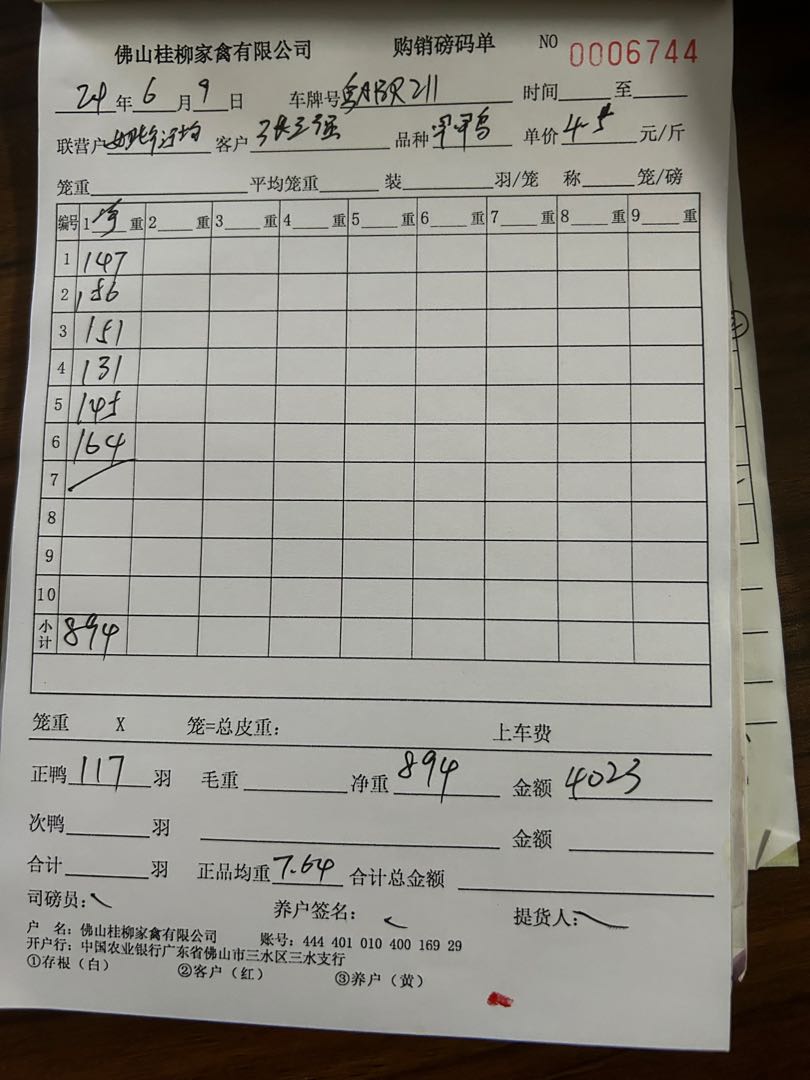 佛山桂柳家禽有限公司 购销磅码单 NO 0006744
24年6月9日 车牌号 ABR211 时间 至
联营户 客户 张三强 品种 单价 4.5 元/斤
笼重 平均笼重 装 羽/笼 称 笼/磅
编号 1 净 重 2 重 3 重 4 重 5 重 6 重 7 重 8 重 9 重
1 147
2 156
3 151
4 131
5 145
6 164
7
8
9
10
小计 894
笼重 X 笼=总皮重: 上车费
正鸭 117 羽 毛重 净重 894 金额 4023
次鸭 羽 金额
合计 羽 正品均重 7.64 合计总金额
司磅员: 养户签名: 提货人:
户 名: 佛山桂柳家禽有限公司 账号: 444 401 010 400 169 29
开户行: 中国农业银行广东省佛山市三水区三水支行
①存根(白) ②客户(红) ③养户(黄)